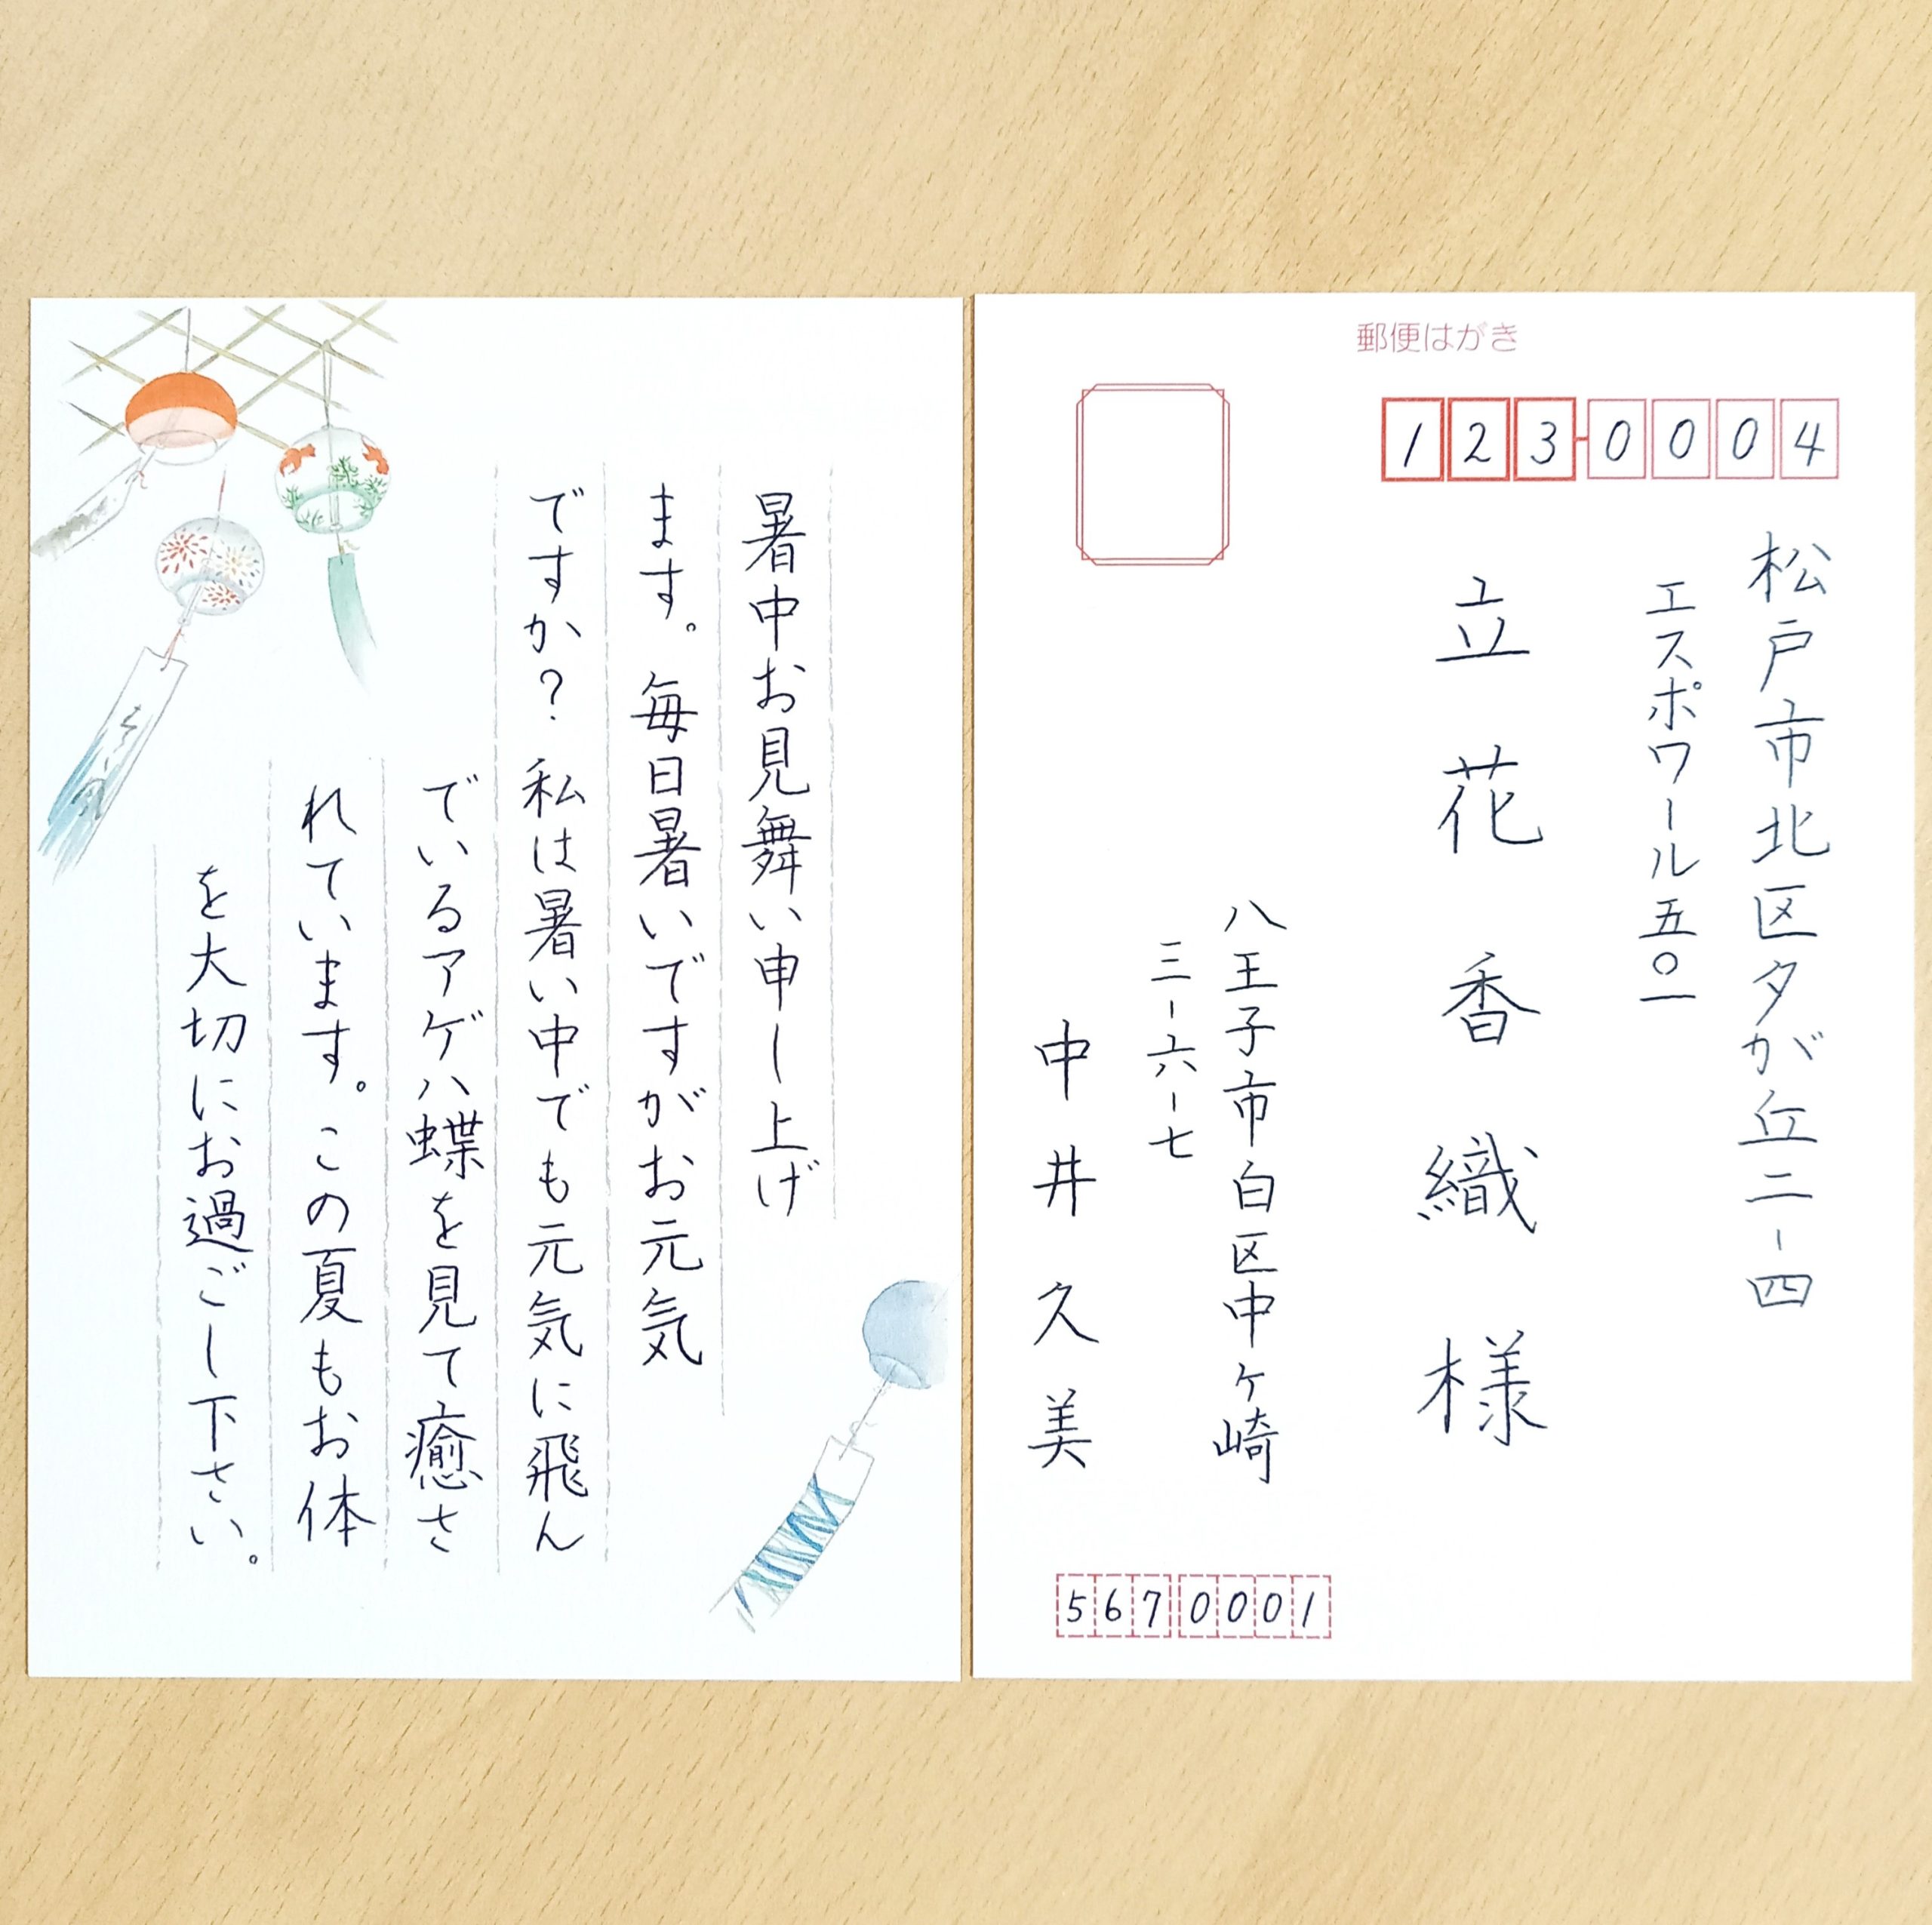 郵便はがき
123-0004
松戸市北区夕が丘二-四
エスポワール五〇一
立花香織様
八王子市白区中ヶ崎
三-六-七
中井久美
5670001
暑中お見舞い申し上げ
ます。毎日暑いですがお元気
ですか？私は暑い中でも元気に飛ん
でいるアゲハ蝶を見て癒さ
れています。この夏もお体
を大切にお過ごし下さい。